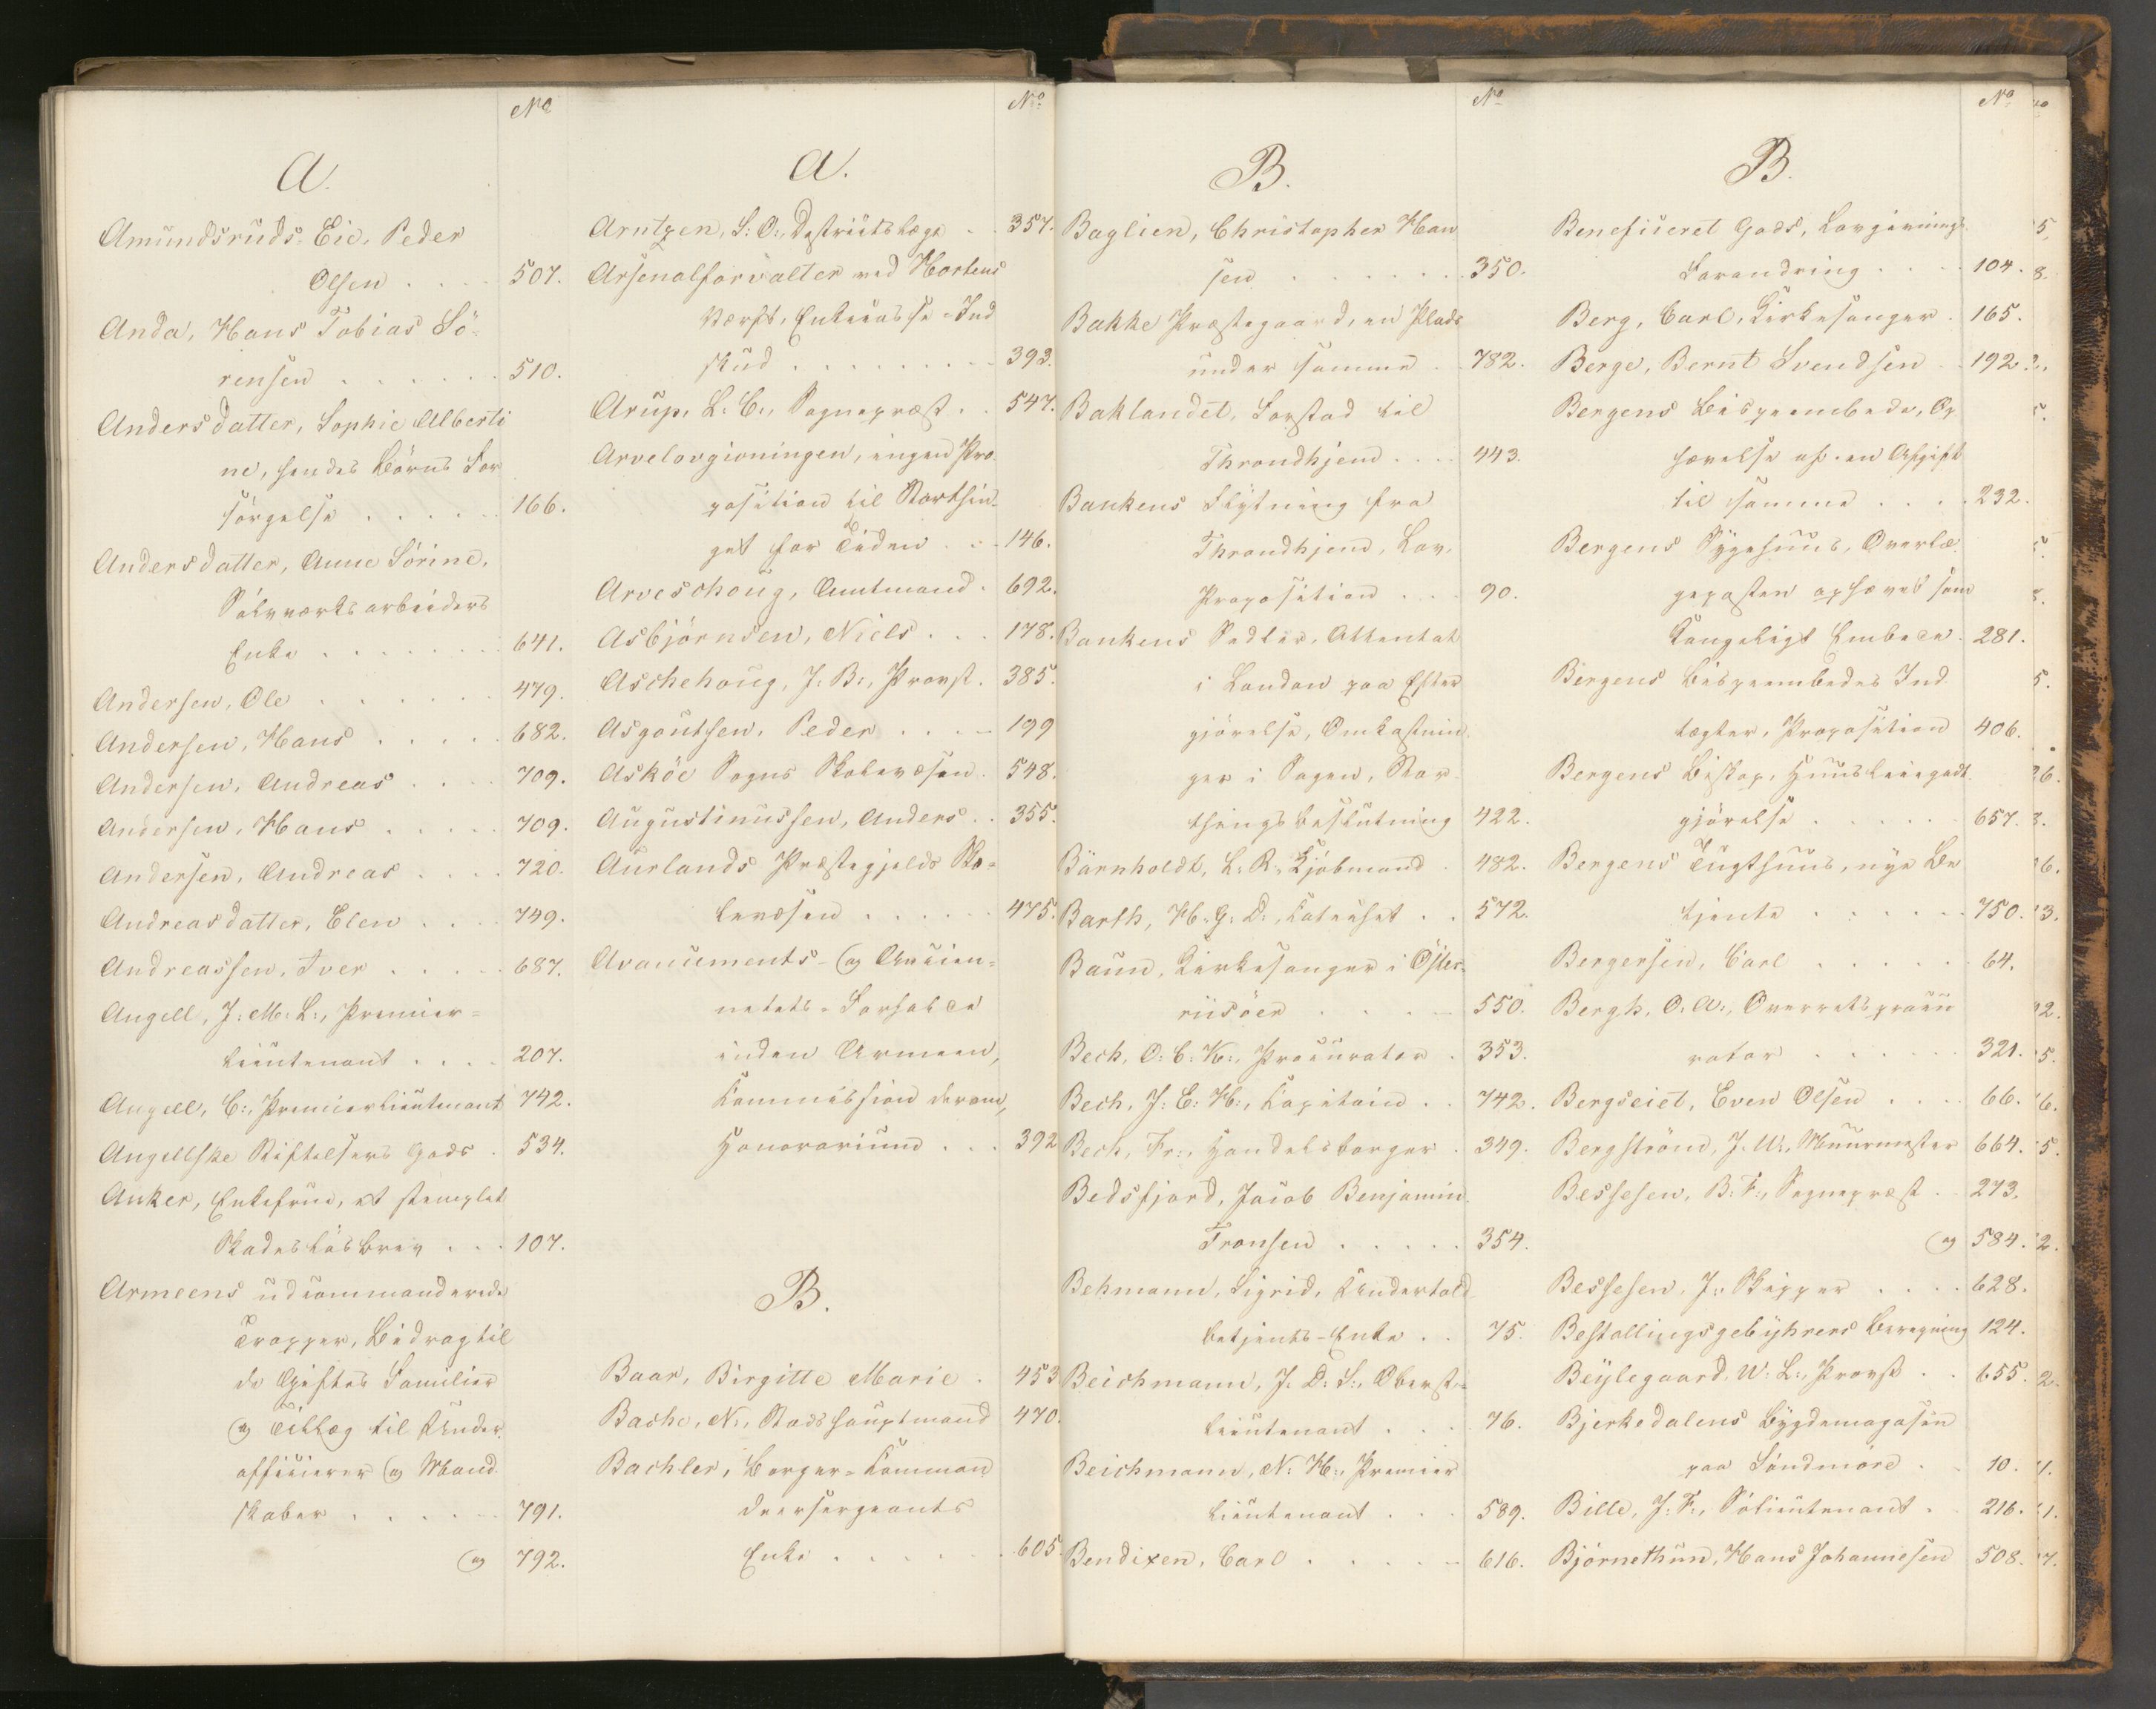 No
A.
Amundsruds Eie, Peder
Olsen . . . . 507.
Anda, Hans Tobias Sö-
rensen . . . . . . 510.
Andersdatter, Sophie Alberti
ne, hendes Börns For
sörgelse . . . . . . 166.
Andersdatter, Anne Sörine,
Sölvværksarbeiders
Enke . . . . . . . 641.
Andersen, Ole . . . . . . 479.
Andersen, Hans . . . . . 682.
Andersen, Andreas . . . . 709.
Andersen, Hans . . . . . 709.
Andersen, Andreas . . . . 720.
Andreasdatter, Elen . . . . 749.
Andreassen, Iver . . . . . 687.
Angell, J: M: L:, Premier-
lieutenant . . . . 207.
Angell, C:, Premierlieutenant 742.
Angellske Stiftelsers Gods . 534.
Anker, Enkefrue, et stemplet
Skadeslösbrev . . . 107.
Armeens udcommanderede
Tropper, Bidrag til
de Giftes Familier
og Tillæg til Under
officierer og Mand
skaber . . . . . . 791.
og 792.
No
A.
Arntzen, S: O:, Districtslæge . . 357.
Arsenalforvalter ved Hortens
Værft, Enkecasse-Ind
skud . . . . . . . . 393.
Arup, L: C:, Sognepræst . . 547.
Arvelovgivningen, ingen Pro
position til Storthin-
get for Tiden . . . 146.
Arveschoug, Amtmand . 692.
Asbjörnsen, Niels . . . 178.
Aschehoug, J: B:, Provst . 385.
Asgoutsen, Peder . . . . 199
Asköe Sogns Skolevæsen . 548.
Augustinussen, Anders . . 355.
Aurlands Præstegjelds Sko-
levæsen . . . . . . 475.
Avancements- og Ancien-
netets-Forhold
inden Armeen,
Kommission derom,
Honorarium . . . 392
B.
Baar, Birgitte Marie . 453
Bache, N:, Stadshauptmand 470.
Bachler, Borger-Komman
deersergeants
Enke . . . . . . . 605.
No
B.
Baglien, Christopher Han
sen . . . . . . . 350.
Bakke Præstegaard, en Plads
under samme . . 782.
Baklandet, Forstad til
Throndhjem . . . . 443.
Bankens Flytning fra
Throndhjem, Lov-
Proposition . . . 90.
Bankens Sedler, Attentat
i London paa Efter
gjörelse, Omkostnin
ger i Sagen, Stor
thingsbeslutning 422.
Bärnholdt, L: R:, Kjöbmand . 482.
Barth, H: G: D:, Catechet . . 572.
Baun, Kirkesanger i Öster-
riisöer . . . . . 550.
Bech, O: C: K:, Procurator . 353.
Bech, J: C: H:, Kapitain . . 742.
Bech, Fr:, Handelsborger . 349.
Bedsfjord, Jacob Benjamin
Fransen . . . . . 354.
Behmann, Sigrid, Undertold
betjents-Enke . . 75.
Beichmann, J: D: S:, Oberst-
lieutenant . . . . 76.
Beichmann, N: H:, Premier
lieutenant . . . 589.
Bendixen, Carl . . . . . . 616.
No
B.
Beneficeret Gods, Lovgivnings
Forandring . . . . 104.
Berg, Carl, Kirkesanger . 165.
Berge, Bernt Svendsen . . 192
Bergens Bispeembede, Op
hævelse af en Afgift
til samme . . . . 232.
Bergens Sygehuus, Overlæ
geposten ophævet som
Kongeligt Embede . 281.
Bergens Bispeembedes Ind
tægter, Proposition 406.
Bergens Biskop, Huusleiegodt
gjörelse . . . . . . 657.
Bergens Tugthuus, nye Be
tjente . . . . . . 750.
Bergersen, Carl . . . . . 64.
Bergh, O: A:, Overretsprocu
rator . . . . . . 321.
Bergseiet, Even Olsen . . . . 66.
Bergström, J: W:, Muurmester 664.
Bessesen, B: F:, Sognepræst . 273.
og 584.
Bessesen, J:, Skipper . . . . 628.
Bestallingsgebyhrers Beregning 124.
Beylegaard, W: L:, Provst . . 655.
Bjerkedalens Bygdemagasin
paa Söndmöre . . 10.
Bille, J: F:, Sölieutenant . 216.
Björnethun, Hans Johannesen 508.